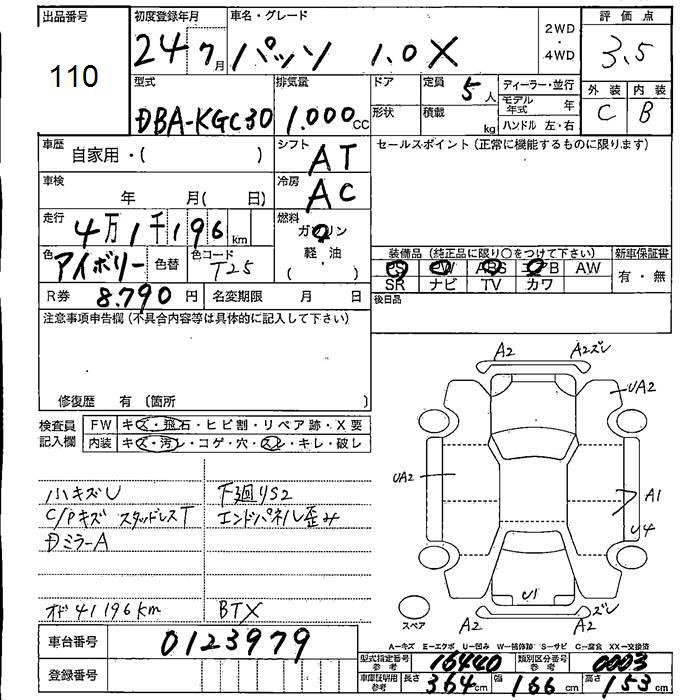 出品番号 初度登録年月 車名・グレード 2WD ・ 4WD 評価点
110 24 7月 パッソ 1.0X 3.5
型式 排気量 ドア 定員 5人 ディーラー・並行 外装 内装
DBA-KGC30 1.000cc 形状 積載 kg モデル年式 年 C B
ハンドル 左・右
車歴 自家用・( ) シフト AT セールスポイント(正常に機能するものに限ります)
車検 年 月( 日) 冷房 AC
走行 4万1千196km 燃料 ガソリン
軽・油
( )
色 アイボリー 色替 色コード T25 装備品(純品品に限り○をつけて下さい) 新車保証書
PS PW ABS エアB AW 有・無
SR ナビ TV カワ
R券 8.790円 名変期限 月 日 後日品
注意事項申告欄(不具合内容等は具体的に記入して下さい)
修復歴 有 〔箇所 〕
検査員記入欄 FW キズ・飛石・ヒビ割・リペア跡・X要
内装 キズ・汚レ・コゲ・穴・スレ・キレ・破レ
A2 A2ズレ
UA2
UA2
A1
U4
小キズU F廻りS2
C/Pキズ スタッドレスT エンドパネル歪み
Dミラー A
U1
オド41196km BTX
スペア A2 A2 ズレ
A-キズ E-エクボ U-凹み W-補修跡 S-サビ C-腐食 XX-交換済
車台番号 0123979 型式指定番号参考 16440 類別区分番号参考 0003
登録番号 車庫証明用参考 長さ 364cm 幅 166cm 高さ 153cm